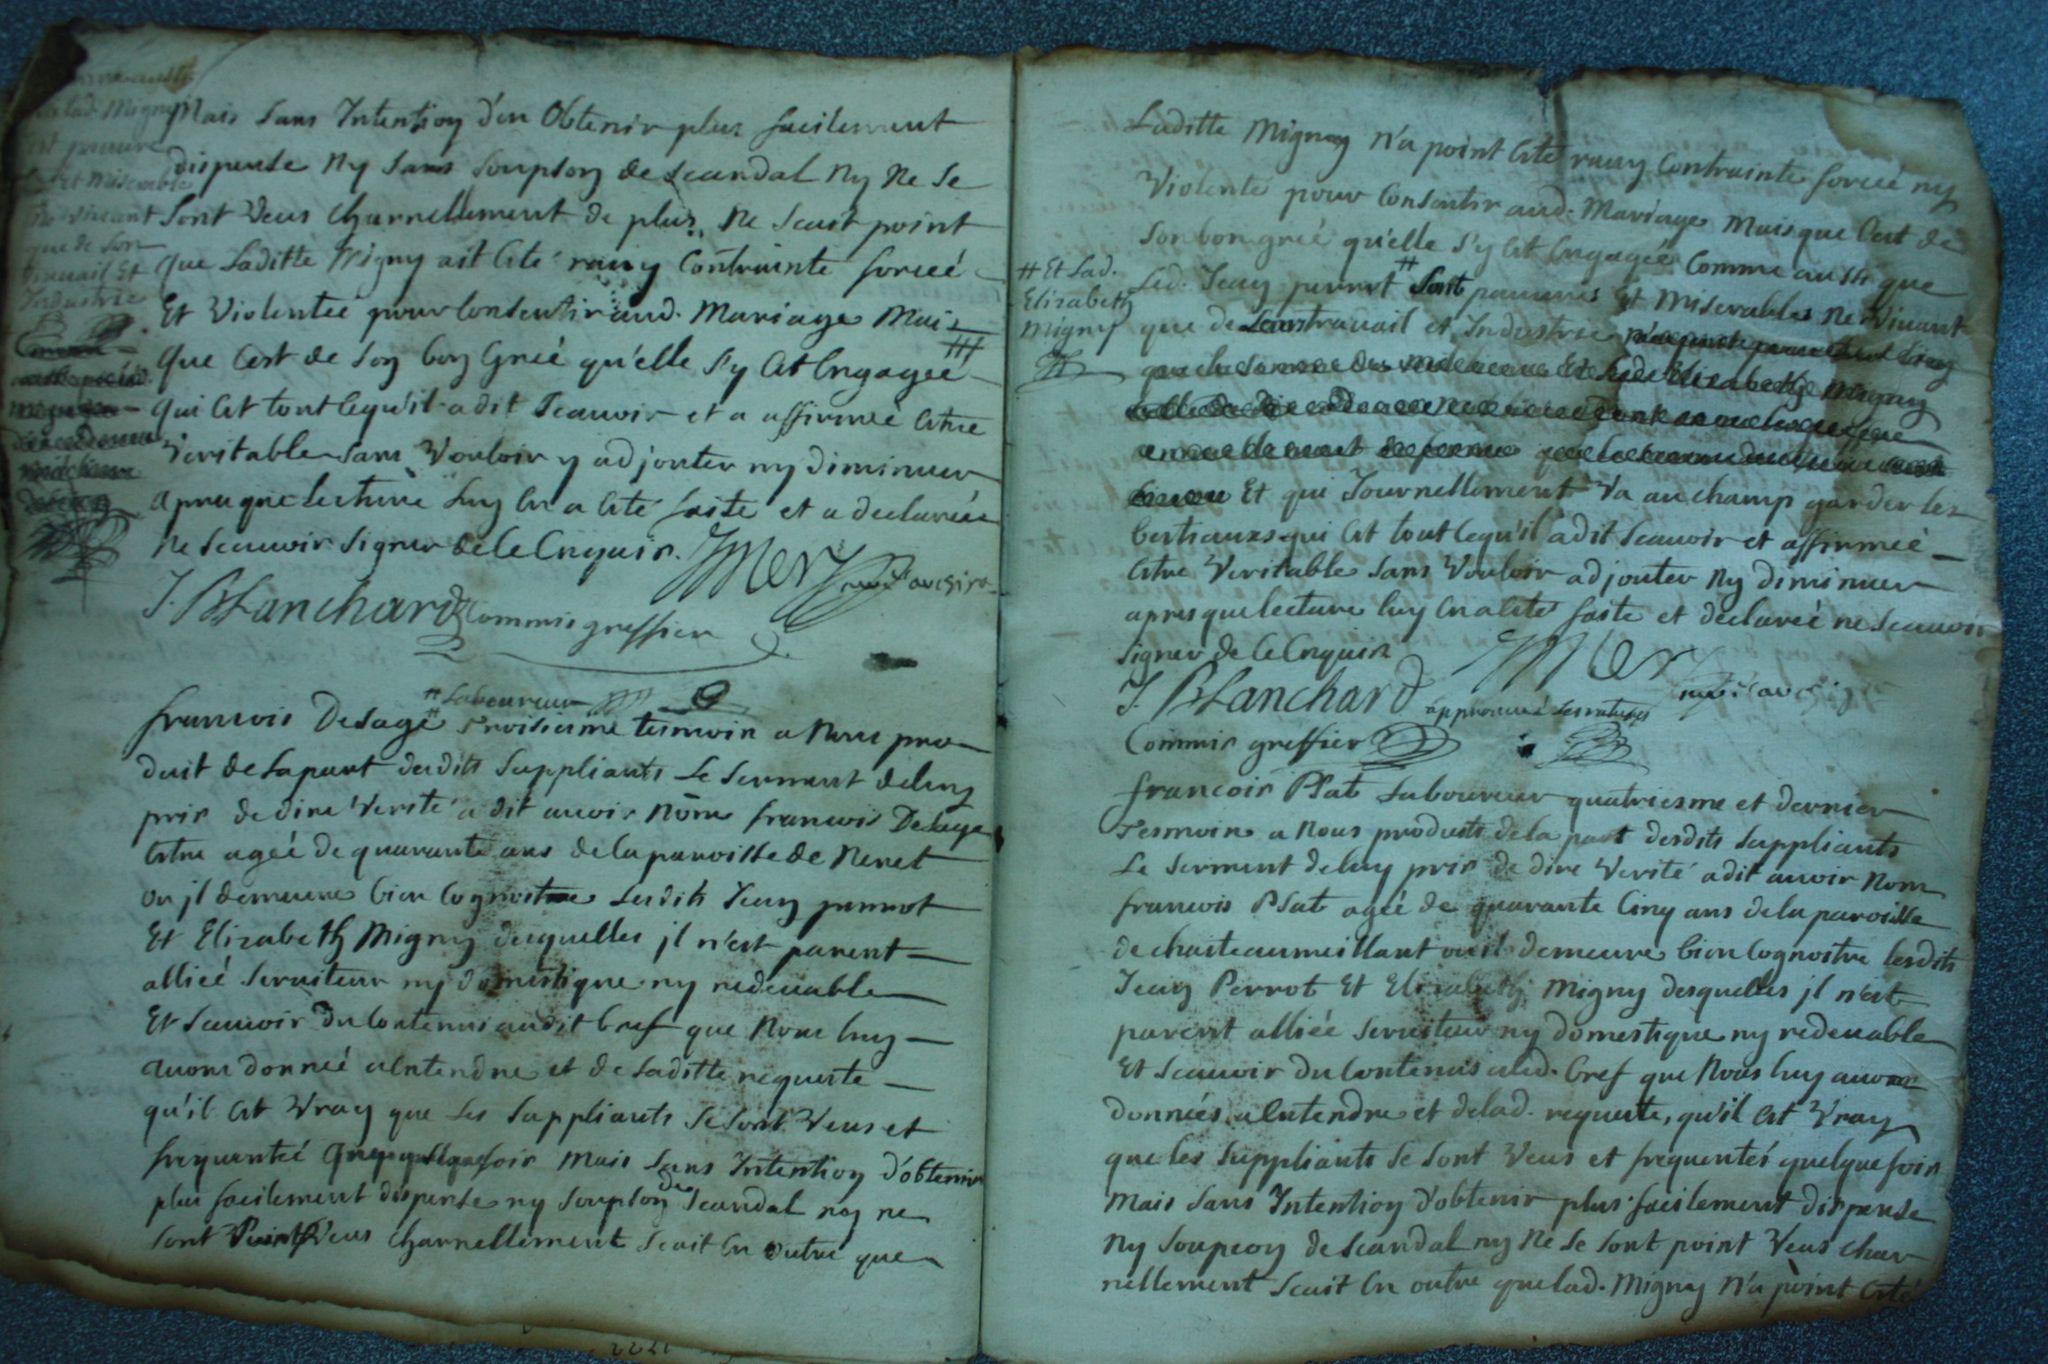 lad. Migny
est pauure
et miserable
ne viuant
que de son
trauail Et
Industrie
Mais Sans Intention d'en Obtenir plus facilement
dispense Ny Sans Soupson de scandal Ny Ne Se
Sont Veus Charnellement de plus Ne Scait point
Que Laditte Migny ait Esté rauy Contrainte forceé
Et Violenteé pour Consentir aud. Mariage Mais
Que C'est de Son bon Greé qu'elle S'y Est Engageé ###
Qui Est tout Cequ'il a dit Scauoir et a affirmeé Estre
Veritable Sans Vouloir y adjouter ny diminuer
apres que lecture Luy En a Esté faite et a declareé
Ne Scauoir Signer de Ce Enquis.
J. Blanchard Commis greffier
# Laboureur
francois Desage # Troisieme temoin a Nous pro
duit de La part desdits Suppliants Le Serment de luy
pris de dire Verité a dit auoir Nom francois Desage
Estre ageé de quarante ans de la paroisse de Neret
ou jl demeure bien Cognoistre Lesdits Jean perrot
Et Elizabeth Migny desquelles jl n'est parent
allieé Seruiteur ny domestique ny redeuable
Et Scauoir du Contenu audit bref que Nous luy
auons donneé a Entendre et de Laditte requeste
qu'il Est Vray que Les Suppliants Se Sont Veus et
frequenteé quelquefois Mais Sans Intention d'obtenir
plus facilement dispense ny Soupson de Scandal ny ne
Sont Veus Charnellement Scait En outre que
Laditte Migny N'a point Esté rauy Contrainte forceé ny
Violenté pour Consentir aud. Mariage Mais que C'est de
Son bon greé qu'elle S'y Est Engageé Comme aussi que
Led. Jean perrot # Sont pauures Et Miserables Ne Viuant
# Et Lad.
Elizabeth
Migny
que de Leur trauail et Industrie
Et qui Journellement Va au champ garder les
bestiaux qui Est tout Cequ'il a dit Scauoir et affirmeé
Estre Veritable Sans Vouloir adjouter Ny diminuer
apres que lecture luy En a Esté faite et declareé ne Scauoir
Signer de Ce Enquis
J. Blanchard approuué Les ratures
Commis greffier
francois Plat Laboureur quatriesme et dernier
Tesmoin a Nous produits de la part desdits Suppliants
Le Serment de luy pris de dire Verité a dit auoir Nom
francois Plat ageé de quarante Cinq ans de la paroisse
de chasteaumeillant ou il demeure bien Cognoitre lesdits
Jean Perrot Et Elizabeth Migny desquelles jl n'est
parent allieé Seruiteur ny domestique ny redeuable
Et Scauoir du Contenus aud. bref que Nous luy auons
donneés a Entendre et de lad. requeste, qu'il Est Vray
que les Suppliants Se Sont Veus et frequentés quelquefois
Mais Sans Intention d'obtenir plus facilement dispense
Ny Soupcon de Scandal ny Ne Se Sont point Veus Char
nellement Scait En outre que lad. Migny N'a point Esté